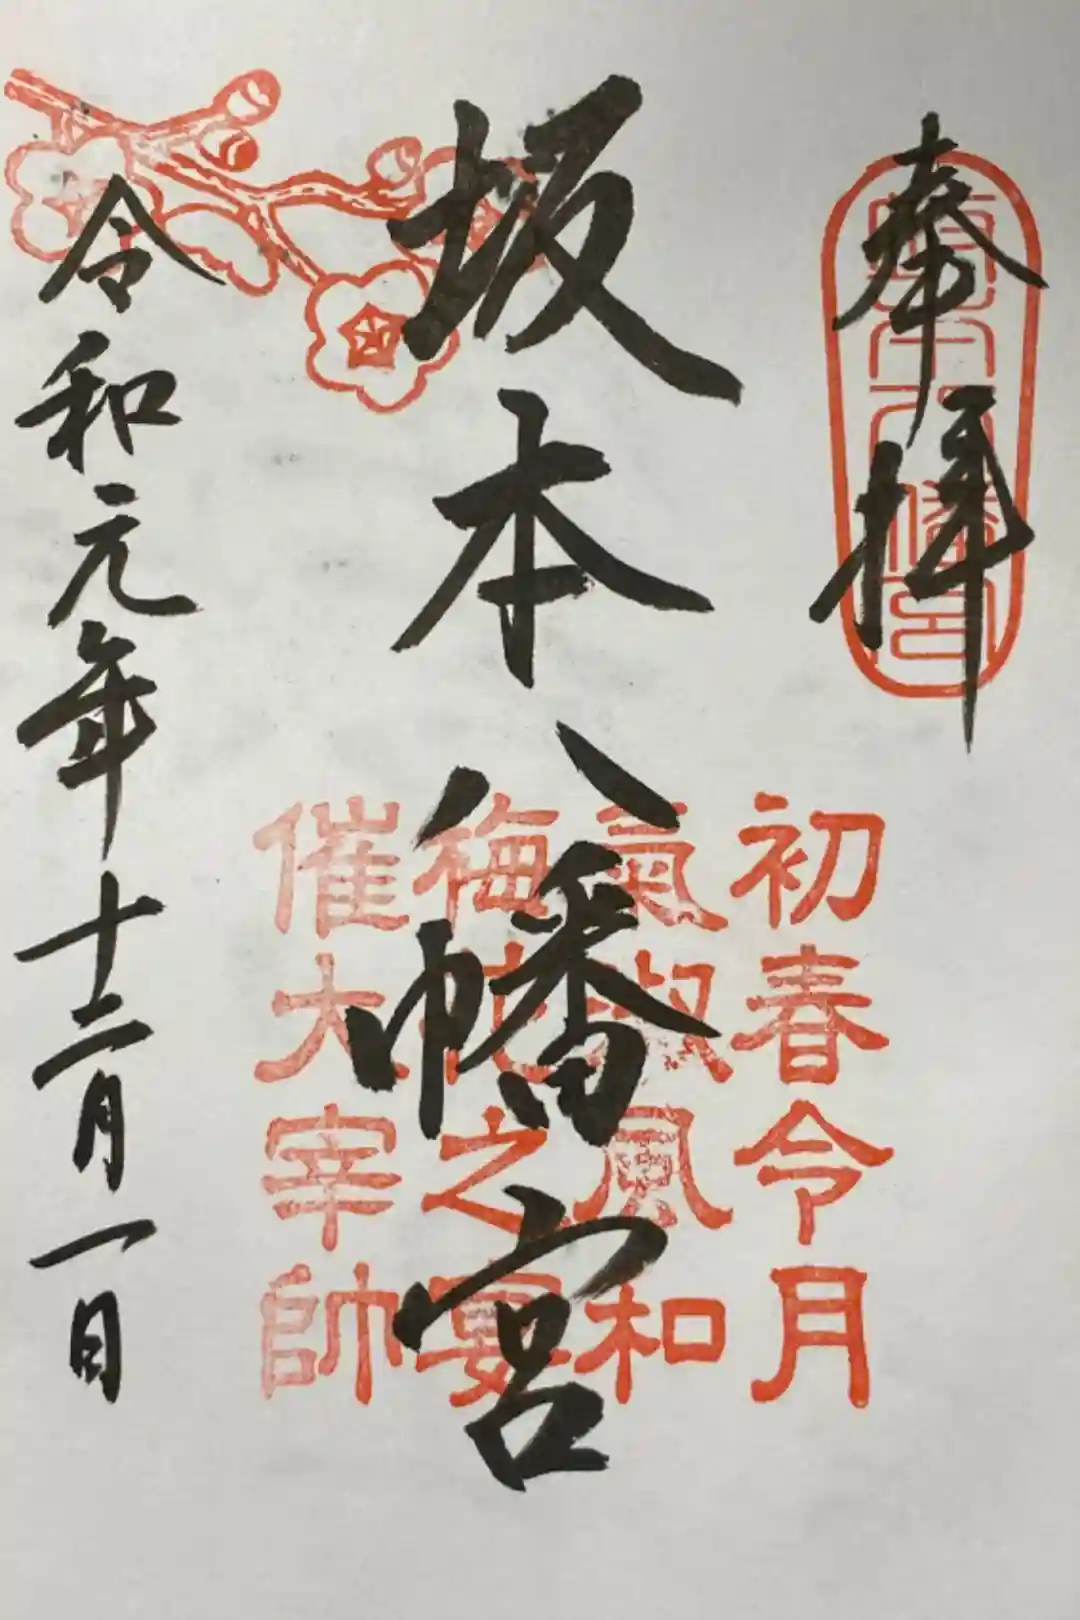 奉拝
坂本八幡宮
令和元年十二月一日
初春令月
氣淑風和
梅花之宴
催大宰帥